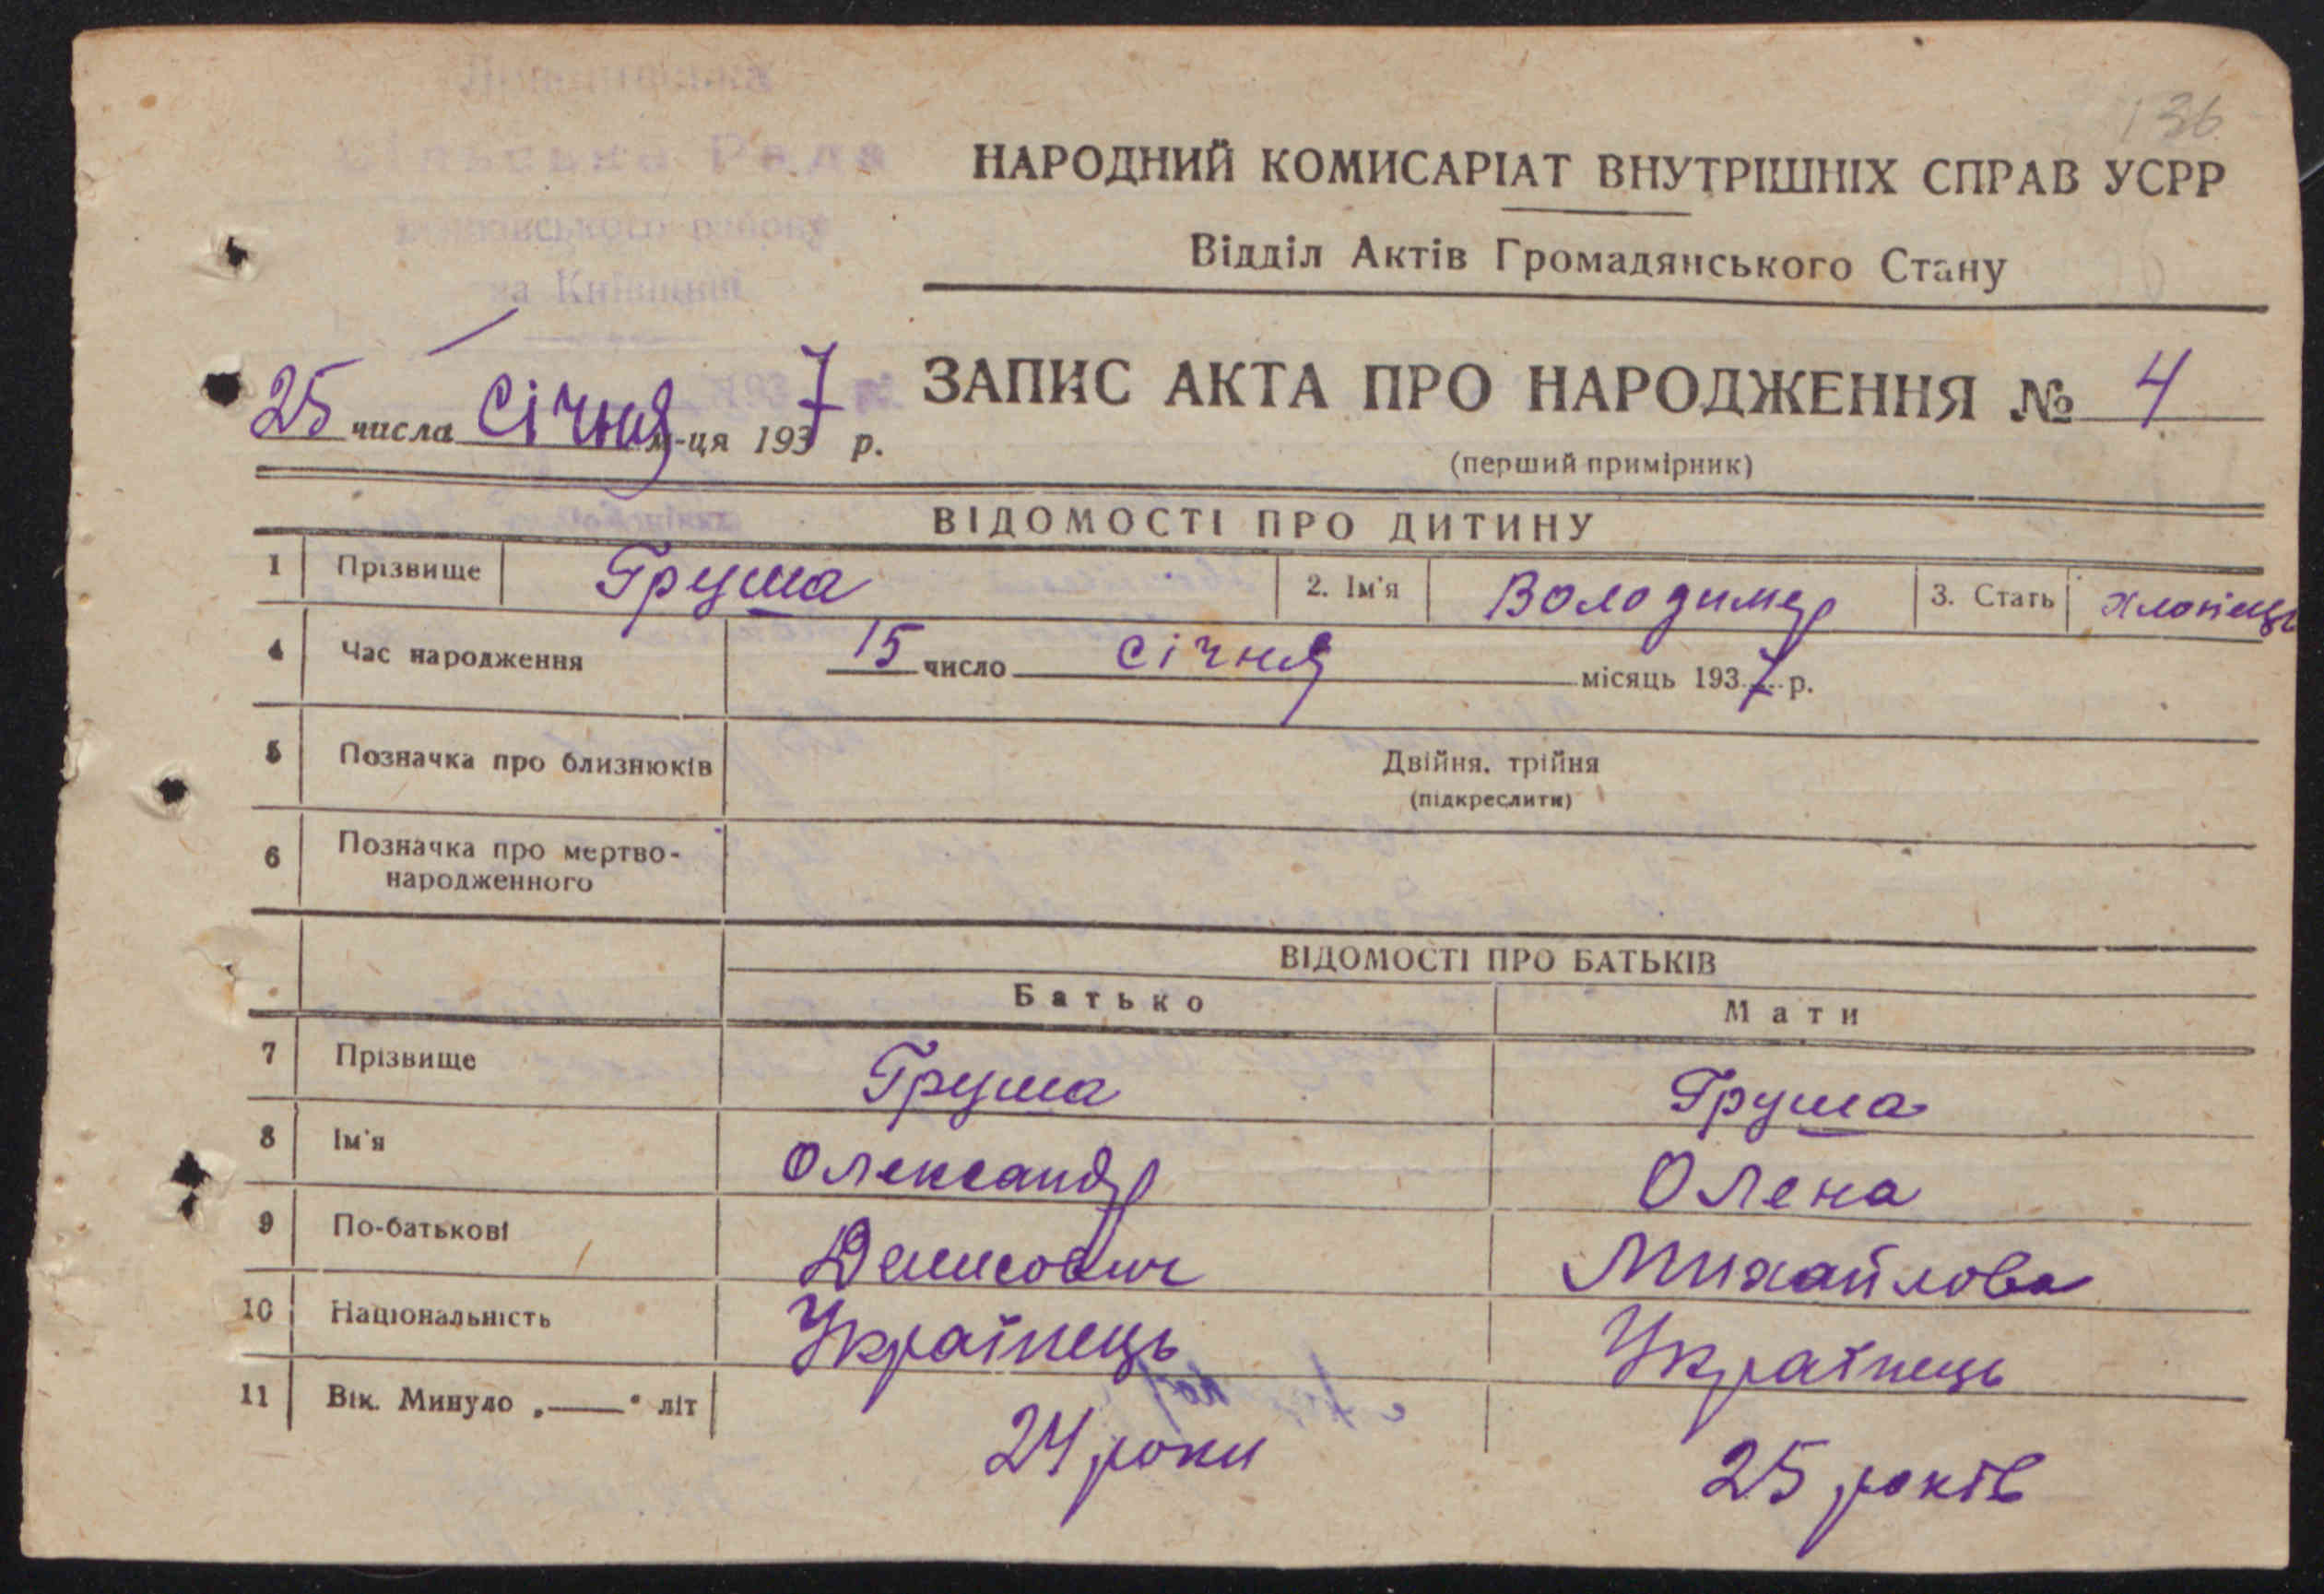 136
НАРОДНИЙ КОМИСАРІАТ ВНУТРІШНІХ СПРАВ УСРР
Відділ Актів Громадянського Стану
на Київщині
25 числа Січня м-ця 1937 р. ЗАПИС АКТА ПРО НАРОДЖЕННЯ № 4
(перший примірник)
ВІДОМОСТІ ПРО ДИТИНУ
1 Прізвище Груша 2. Ім'я Володимир 3. Стать хлопець
4 Час народження 15 число січня місяць 1937 р.
5 Позначка про близнюків Двійня, трійня
(підкреслити)
6 Позначка про мертво-
народженного
ВІДОМОСТІ ПРО БАТЬКІВ
Батько Мати
7 Прізвище Груша Груша
8 Ім'я Олександр Олена
9 По-батькові Денисович Михайлова
10 Національність Українець Українець
11 Вік. Минуло „——“ літ 24 роки 25 років